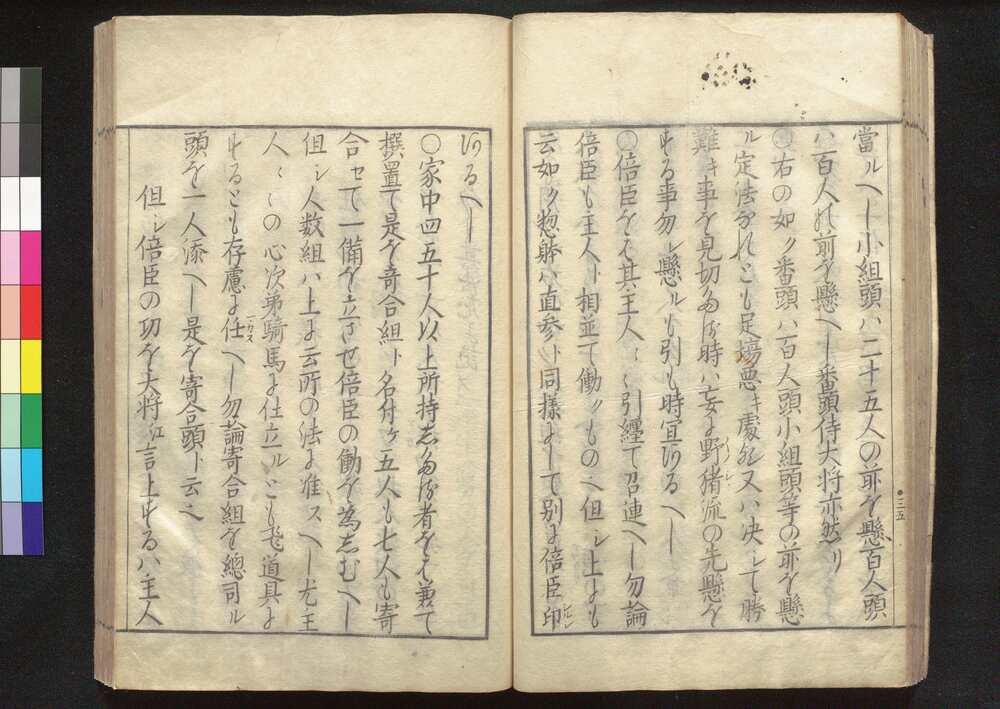 當ルヘし小組頭ハ二十五人の前を懸百人頭
ハ百人の前を懸へし番頭侍大将亦然り
○右の如ク番頭ハ百人頭小組頭等の前を懸
ル定法なれとも足場悪キ處歟又ハ决して勝
難キ事を見切たる時ハ妄に野猪流の先懸を
する事勿レ懸ルも引も時宜あるへし
○倍臣をは其主人〻〻引纏て召連へし勿論
倍臣も主人ト相並て働クもの也但シ上にも
云如ク惣躰ハ直参ト同様にして別に倍臣印
三五
あるへし
○家中四五十人以上所持したる者をは兼て
撰置て是を寄合組ト名付ケ五人も七人も寄
合セて一備を立させ倍臣の働を為しむへし
但シ人数組ハ上に云所の法に准スへし尤主
人〻〻の心次第騎馬に仕立ルとも飛道具に
するとも存慮に任へし勿論寄合組を總司ル
頭を一人添へし是を寄合頭ト云也
但シ倍臣の功を大将江言上するハ主人